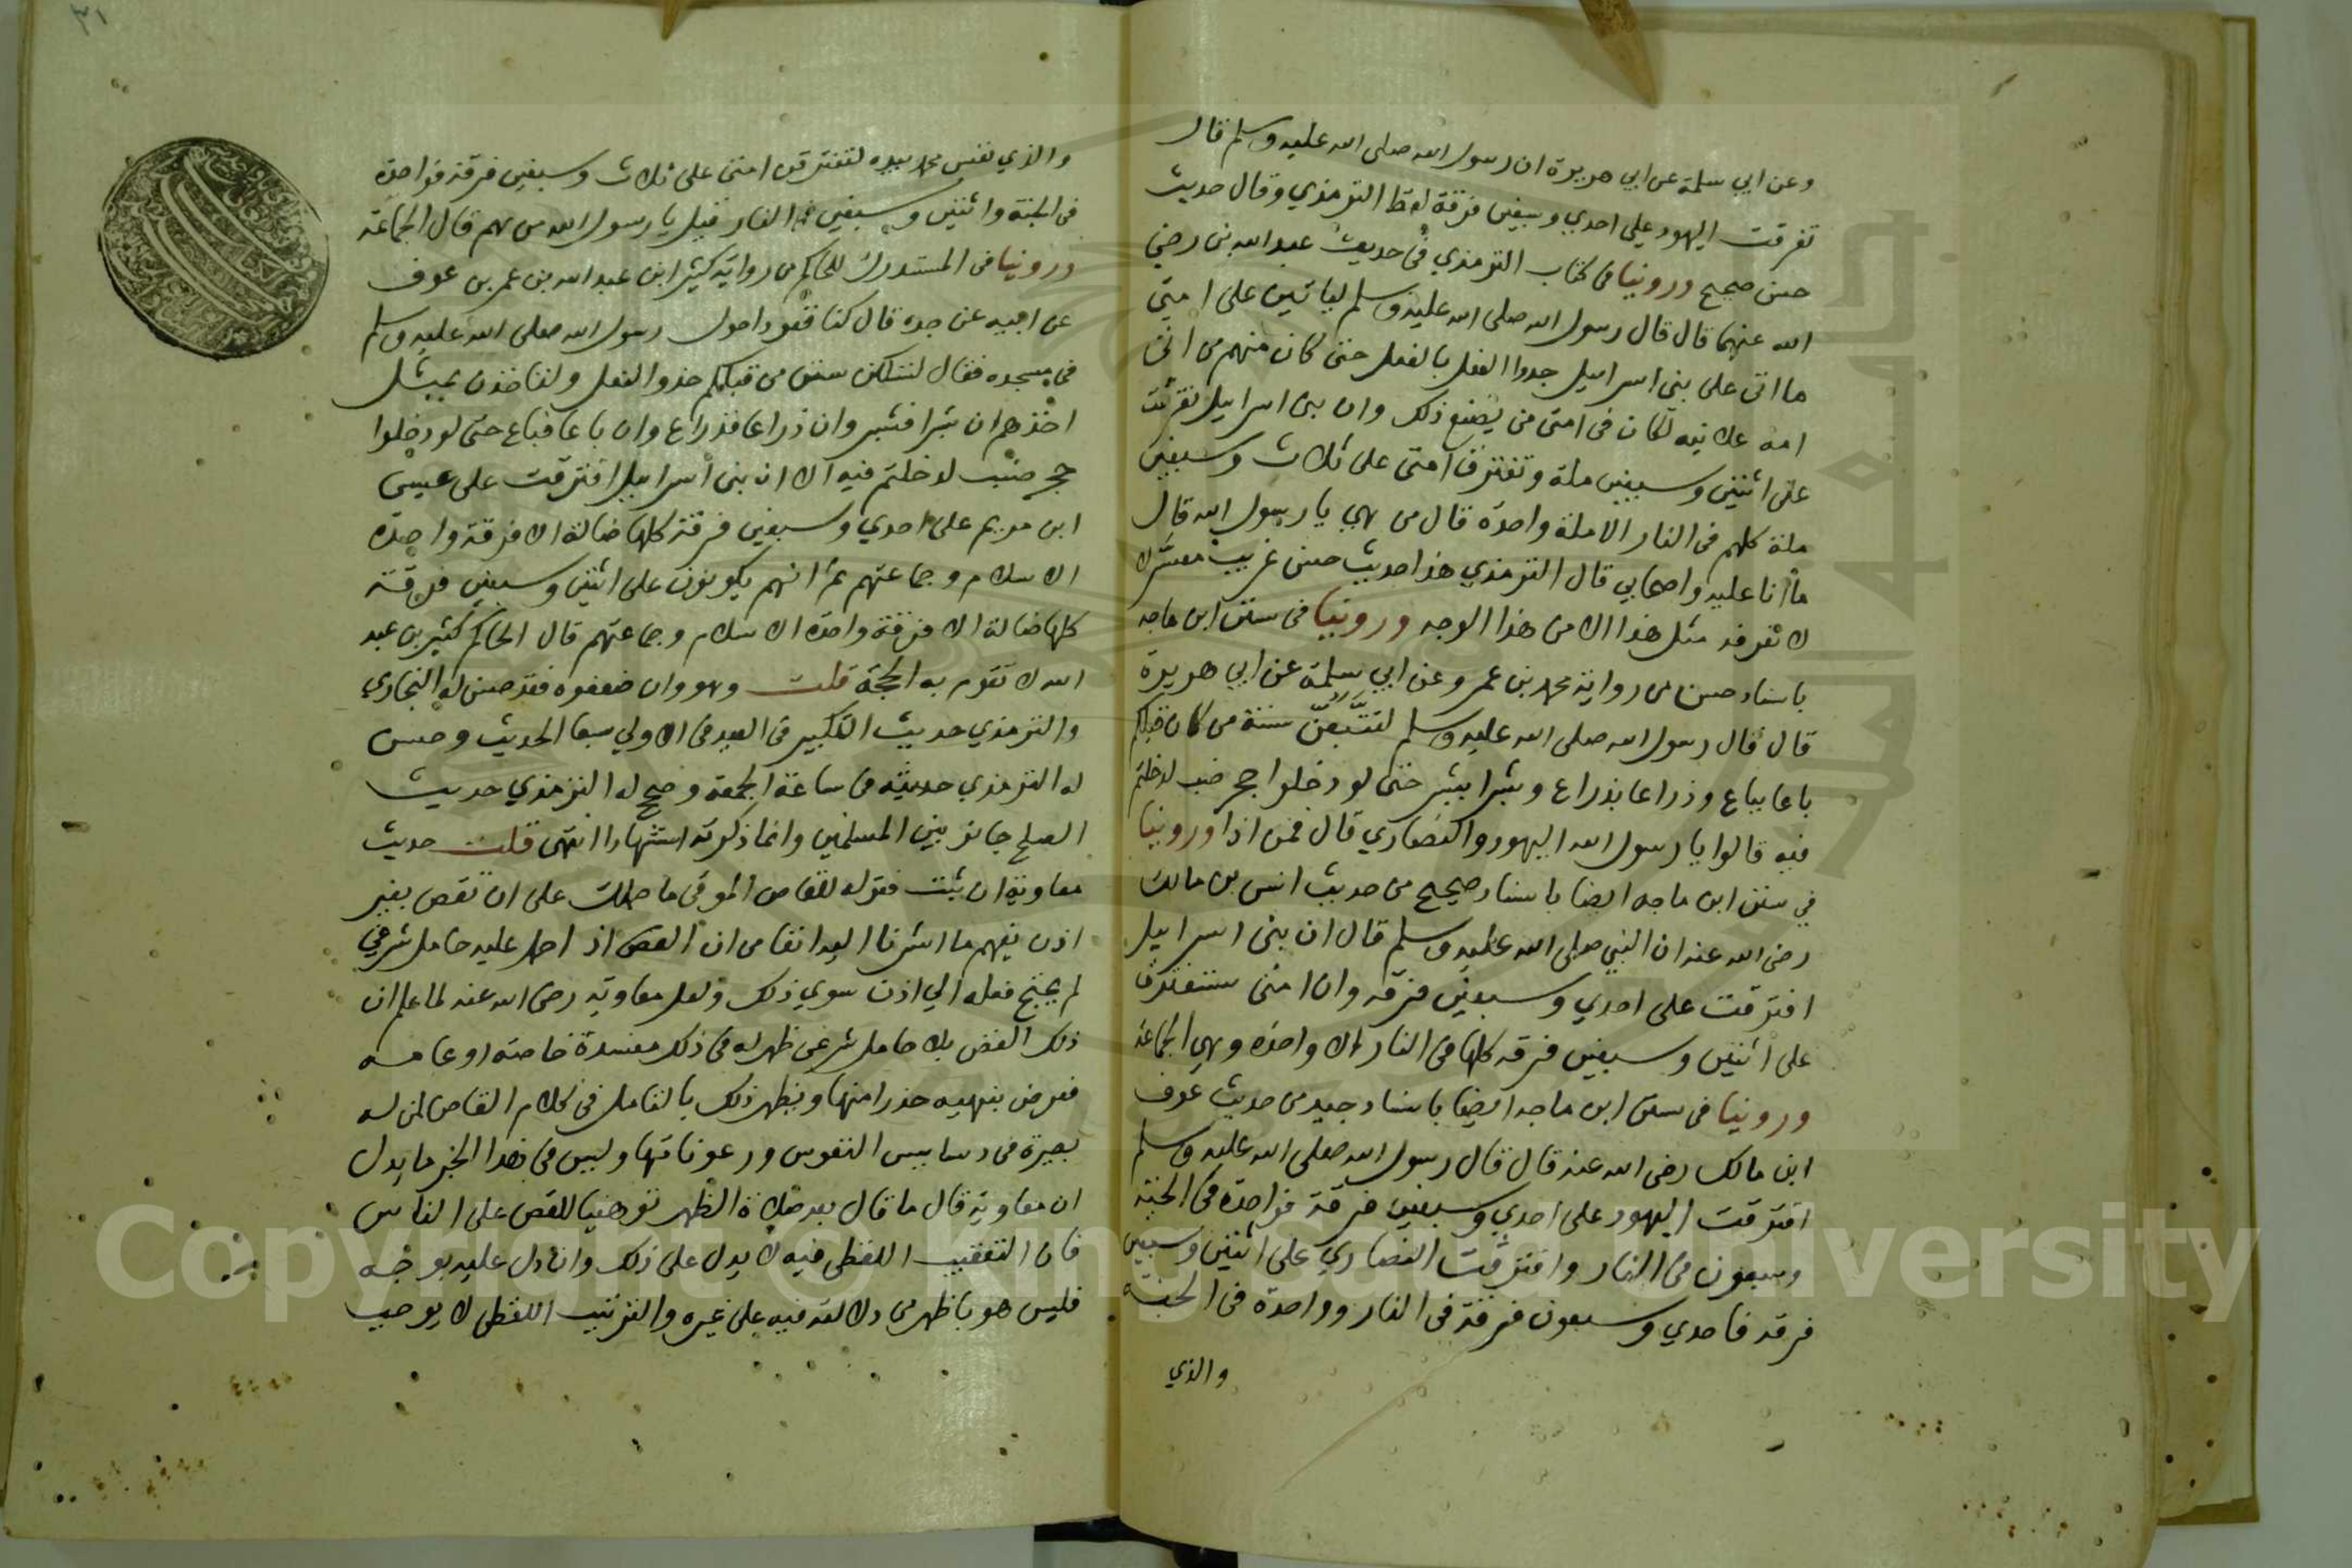 وعن ابي سلمة عن ابي هريرة ان رسول الله صلى الله عليه وسلم قال
تفرقت اليهود علي احدي وسبعين فرقة لفظ الترمذي وقال حديث
حسن صحيح وروينا في كتاب الترمذي في حديث عبد الله بن رضي
الله عنهما قال قال رسول الله صلى الله عليه وسلم لياتين على امتي
ما اتى على بني اسراييل حذوا النعل بالنعل حتى كان منهم من اتى
امه علانيه لكان في امتى من يصنع ذلك وان بني اسراييل تفرقت
على اثنتين وسبعين ملة وتفترق امتى على ثلاث وسبعين
ملة كلهم في النار الا ملة واحدة قال من هي يا رسول الله قال
ما انا عليه واصحابي قال الترمذي هذا حديث حسن غريب مفسر لا
لا نعرفه مثل هذا الا من هذا الوجه وروينا في سنن ابن ماجه
باسناد حسن من رواية محمد بن عمر وعن ابي سلمة عن ابي هريرة
قال قال رسول الله صلى الله عليه وسلم لتتبعن سنة من كان قبلكم
باعا بباع وذراعا بذراع وشبرا بشبر حتى لو دخلوا جحر ضب لدخلتم
فيه قالوا يا رسول الله اليهود والنصاري قال فمن اذا وروينا
في سنن ابن ماجه ايضا باسناد صحيح من حديث انس بن مالك
رضي الله عنه ان النبي صلى الله عليه وسلم قال ان بنى اسراييل
افترقت على احدي وسبعين فرقه وان امتى ستفترق
على اثنتين وسبعين فرقه كلها في النار الا واحدة وهي الجماعة
وروينا في سنن ابن ماجه ايضا باسناد جيد من حديث عوف
ابن مالك رضي الله عنه قال قال رسول الله صلى الله عليه وسلم
افترقت اليهود على احدي وسبعين فرقة فواحدة في الجنة
وسبعون في النار وافترقت النصاري على اثنتين وسبعين
فرقه فاحدي وسبعون فرقة في النار وواحدة في الجنة
والذي
٣١
والذي نفس محمد بيده لتفترقن امتى على ثلاث وسبعين فرقة فواحدة
في الجنة واثنتين وسبعين في النار قيل يا رسول الله من هم قال الجماعة
وروينا في المستدرك للحاكم من رواية كثير ابن عبد الله بن عمر بن عوف
عن ابيه عن جده قال كنا قعودا حول رسول الله صلى الله عليه وسلم
في مسجده فقال لتسلكن سنن من قبلكم حذو النعل ولتاخذن بمثل
اخذهم ان شبرا فشبر وان ذراعا فذراع وان باعا فباع حتى لو دخلوا
جحر ضب لدخلتم فيه الا ان بنى اسراييل افترقت على عيسى
ابن مريم على احدي وسبعين فرقة كلها ضالة الا فرقة واحدة
الاسلام وجماعتهم ثم انهم يكونون على اثنتين وسبعين فرقة
كلها ضالة الا فرقة واحدة الاسلام وجماعتهم قال الحاكم كثير بن عبد
الله لا تقوم به الحجة قلت وهو وان ضعفوه فقد حسن له البخاري
والترمذي حديث التكبير في العيد في الاولي سبعا الحديث وحسن
له الترمذي حديثه في ساعة الجمعة وصحح له الترمذي حديث
الصلح جائز بين المسلمين وانما ذكرته استشهادا انتهى قلت حديث
معاوية ان ثبت فقوله للقاص الموقى ما حملك على ان تقص بغير
اذن يفهم ما اشرنا اليه انفا من ان القص اذا حمل عليه حامل شرعي
لم يحتج فعله الي اذن سوي ذلك ولعل معاوية رضى الله عنه لما علم ان
ذلك القص بلا حامل شرعى ظهر له في ذلك مفسدة خاصة او عامه
فعرض بنهيه حذرا منها ويظهر ذلك بالتامل في كلام القاص لمن له
بصيرة في دساييس النفوس ورعوناتها وليس في هذا الخبر ما يدل
ان معاوية قال ما قال بعد صلاة الظهر توهينا للقص على الناس
فان التعقيب اللفظى فيه لا يدل على ذلك وان دل عليه بوجه
فليس هو باظهر من دلالته فيه على غيره والترتيب اللفظى لا يوجب
Copyright © King Saud University